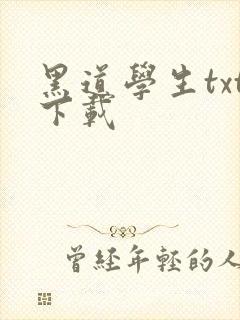 黑道學生txt
下載
曾經年輕的人